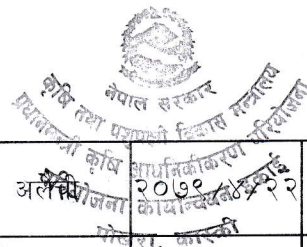 नेपाल सरकार
कृषि तथा पशुपन्छी विकास मन्त्रालय
प्रधानमन्त्री कृषि आधुनिकीकरण परियोजना
परियोजना कार्यान्वयन इकाई
अलैंची
२०७९/४/२२
पोखरा, कास्की